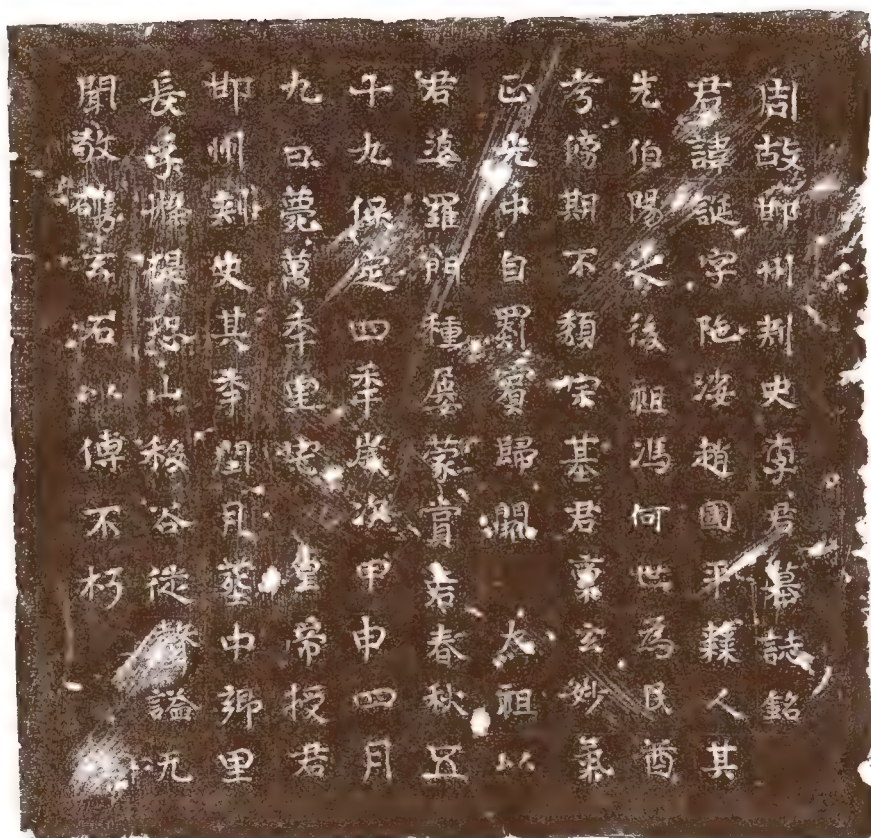 周故邯州刺史李君墓誌銘
君諱誕字陁娑趙國平棘人其
先伯陽之後祖馮何世為民酋
考傍期不頹宗基君稟玄妙氣
正光中自罽賓歸闕 太祖以
君婆羅門種屢蒙賞君春秋五
十九保定四年歲次甲申四月
九日薨萬年里宅 皇帝授君
邯州刺史其年閏月葬中鄉里
長子槃提恐山移谷徙聲謚无
聞敬鐫玄石以傳不朽